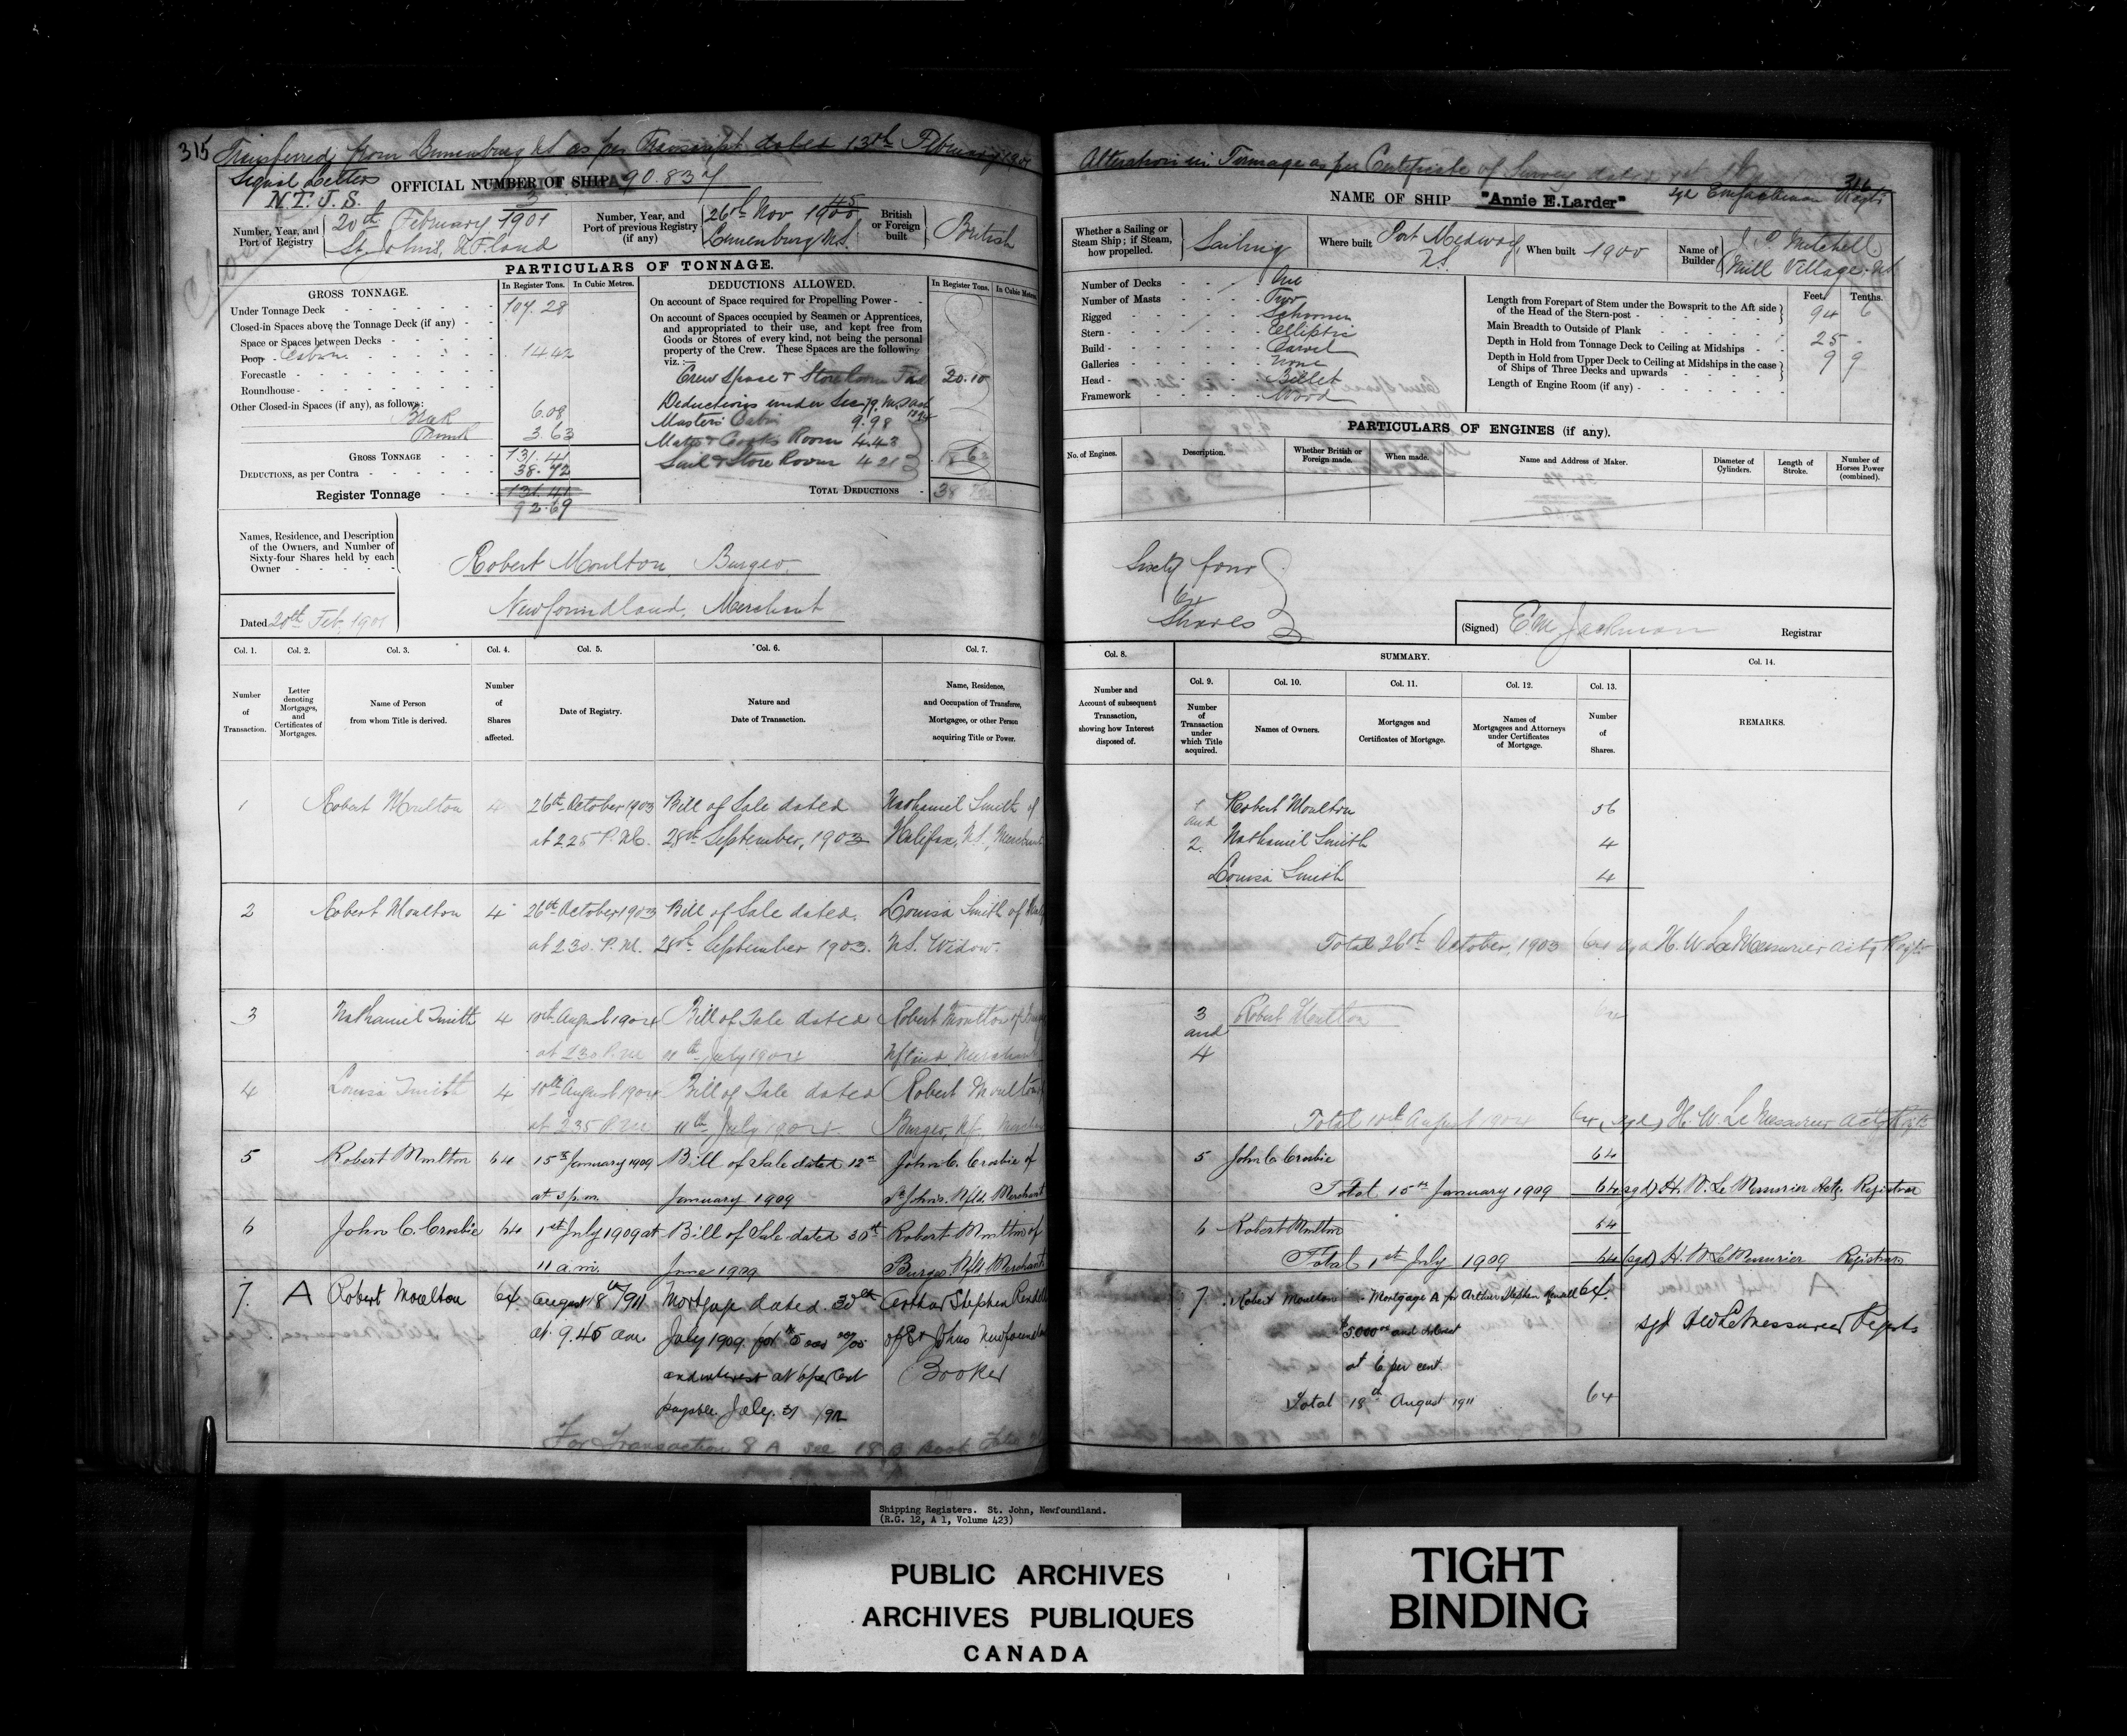 315
Transferred from Lunenburg NS as per Transcript dated 13th February 1901
Signal Letters
N.T.J.S.
OFFICIAL NUMBER OF SHIP 90.837
Number, Year, and Port of Registry
3
20th February 1901
St. Johns, N.F.land
Number, Year, and Port of previous Registry (if any)
26th Nov 1900
Lunenburg N.S.
British or Foreign built
British
PARTICULARS OF TONNAGE.
GROSS TONNAGE.
In Register Tons. In Cubic Metres.
Under Tonnage Deck 107.28
Closed-in Spaces above the Tonnage Deck (if any)
Space or Spaces between Decks
Poop Cabin 14.42
Forecastle
Roundhouse
Other Closed-in Spaces (if any), as follows:
6.08
Trunk 3.63
GROSS TONNAGE 131.41
DEDUCTIONS, as per Contra 38.72
Register Tonnage 131.41
92.69
DEDUCTIONS ALLOWED.
In Register Tons. In Cubic Metres.
On account of Space required for Propelling Power
On account of Spaces occupied by Seamen or Apprentices,
and appropriated to their use, and kept free from
Goods or Stores of every kind, not being the personal
property of the Crew. These Spaces are the following
viz.:—
Crew Space & Store Room 20.10
Deductions under Sec 79. M.S. Act 1894
Masters Cabin 9.98
Mates & Cooks Room 4.43
Sail & Store Room 4.21
18.62
TOTAL DEDUCTIONS 38.72
Names, Residence, and Description
of the Owners, and Number of
Sixty-four Shares held by each
Owner
Robert Moulton Burgeo.
Newfoundland, Merchant
Dated 20th Feb. 1901
Col. 1. Col. 2. Col. 3. Col. 4. Col. 5. Col. 6. Col. 7.
Number of Transaction.
Letter denoting Mortgages, and Certificates of Mortgages.
Name of Person from whom Title is derived.
Number of Shares affected.
Date of Registry.
Nature and Date of Transaction.
Name, Residence, and Occupation of Transferee, Mortgagee, or other Person acquiring Title or Power.
1 Robert Moulton 4 26th October 1903 Bill of Sale dated Nathaniel Smith of
at 2.25 P.M. 28th September, 1903 Halifax, N.S., Merchant
2 Robert Moulton 4 26th October 1903 Bill of Sale dated. Louisa Smith of
at 2.30. P.M. 28th September 1903. N.S. Widow.
3 Nathaniel Smith 4 10th August 1904 Bill of Sale dated Robert Moulton of
at 2 30 P.M. 11th July 1904 Nfland Merchant
4 Louisa Smith 4 10th August 1904 Bill of Sale dated Robert Moulton
at 2 35 P.M. 11th July 1904. Burgeo, Nf.
5 Robert Moulton 64 15th January 1909 Bill of Sale dated 12th John C. Crosbie of
at 3 p.m. January 1909 St Johns. Nfld. Merchant
6 John C. Crosbie 64 1st July 1909 at Bill of Sale dated 30th Robert Moulton of
11 a.m. June 1909 Burgeo. Nfld. Merchant
7. A Robert Moulton 64 August 18th/1911 Mortgage dated 30th Arthur Stephen Rendell
at 9.45 am July 1909 for $5000 00/00 of St Johns Newfoundland
and interest at 6 per cent Broker
payable July. 31 1912
For Transaction 8 A see 18
Alteration in Tonnage as per Certificate of Survey dated
316
NAME OF SHIP "Annie E. Larder"
Whether a Sailing or Steam Ship; if Steam, how propelled.
Sailing
Where built Port Medway, N.S.
When built 1900
Name of Builder
J. P. Mitchell
Mill Village. NS
Number of Decks One
Number of Masts Two
Rigged Schooner
Stern Elliptic
Build Carvel
Galleries None
Head Billet
Framework Wood
Feet. Tenths.
Length from Forepart of Stem under the Bowsprit to the Aft side of the Head of the Stern-post 94 6
Main Breadth to Outside of Plank 25 -
Depth in Hold from Tonnage Deck to Ceiling at Midships 9 9
Depth in Hold from Upper Deck to Ceiling at Midships in the case of Ships of Three Decks and upwards
Length of Engine Room (if any)
PARTICULARS OF ENGINES (if any).
No. of Engines.
Description.
Whether British or Foreign made.
When made.
Name and Address of Maker.
Diameter of Cylinders.
Length of Stroke.
Number of Horses Power (combined).
Sixty four
64
Shares
(Signed) E.M. Jackman Registrar
Col. 8.
SUMMARY.
Col. 9. Col. 10. Col. 11. Col. 12. Col. 13. Col. 14.
Number and Account of subsequent Transaction, showing how Interest disposed of.
Number of Transaction under which Title acquired.
Names of Owners.
Mortgages and Certificates of Mortgage.
Names of Mortgagees and Attorneys under Certificates of Mortgage.
Number of Shares.
REMARKS.
1 Robert Moulton 56
and
2. Nathaniel Smith 4
Louisa Smith 4
Total 26th October, 1903 64 sgd H. W. LeMessurier Actg Regtr
3 Robert Moulton 64
and
4
Total 10th August 1904 64 (sgd) H. W. LeMessurier Actg Regtr
5 John C Crosbie 64
Total 15th January 1909 64 (sgd) H. W. LeMessurier Actg. Registrar
6 Robert Moulton 64
Total 1st July 1909 64 (sgd) H. W. LeMessurier Registrar
7. Robert Moulton - Mortgage A for Arthur Stephen Rendell 64.
$5000 00 and interest
at 6 per cent.
sgd HW LeMessurier Regstr
Total 18th August 1911 64
Shipping Registers. St. John, Newfoundland.
(R.G. 12, A 1, Volume 423)
PUBLIC ARCHIVES
ARCHIVES PUBLIQUES
CANADA
TIGHT
BINDING